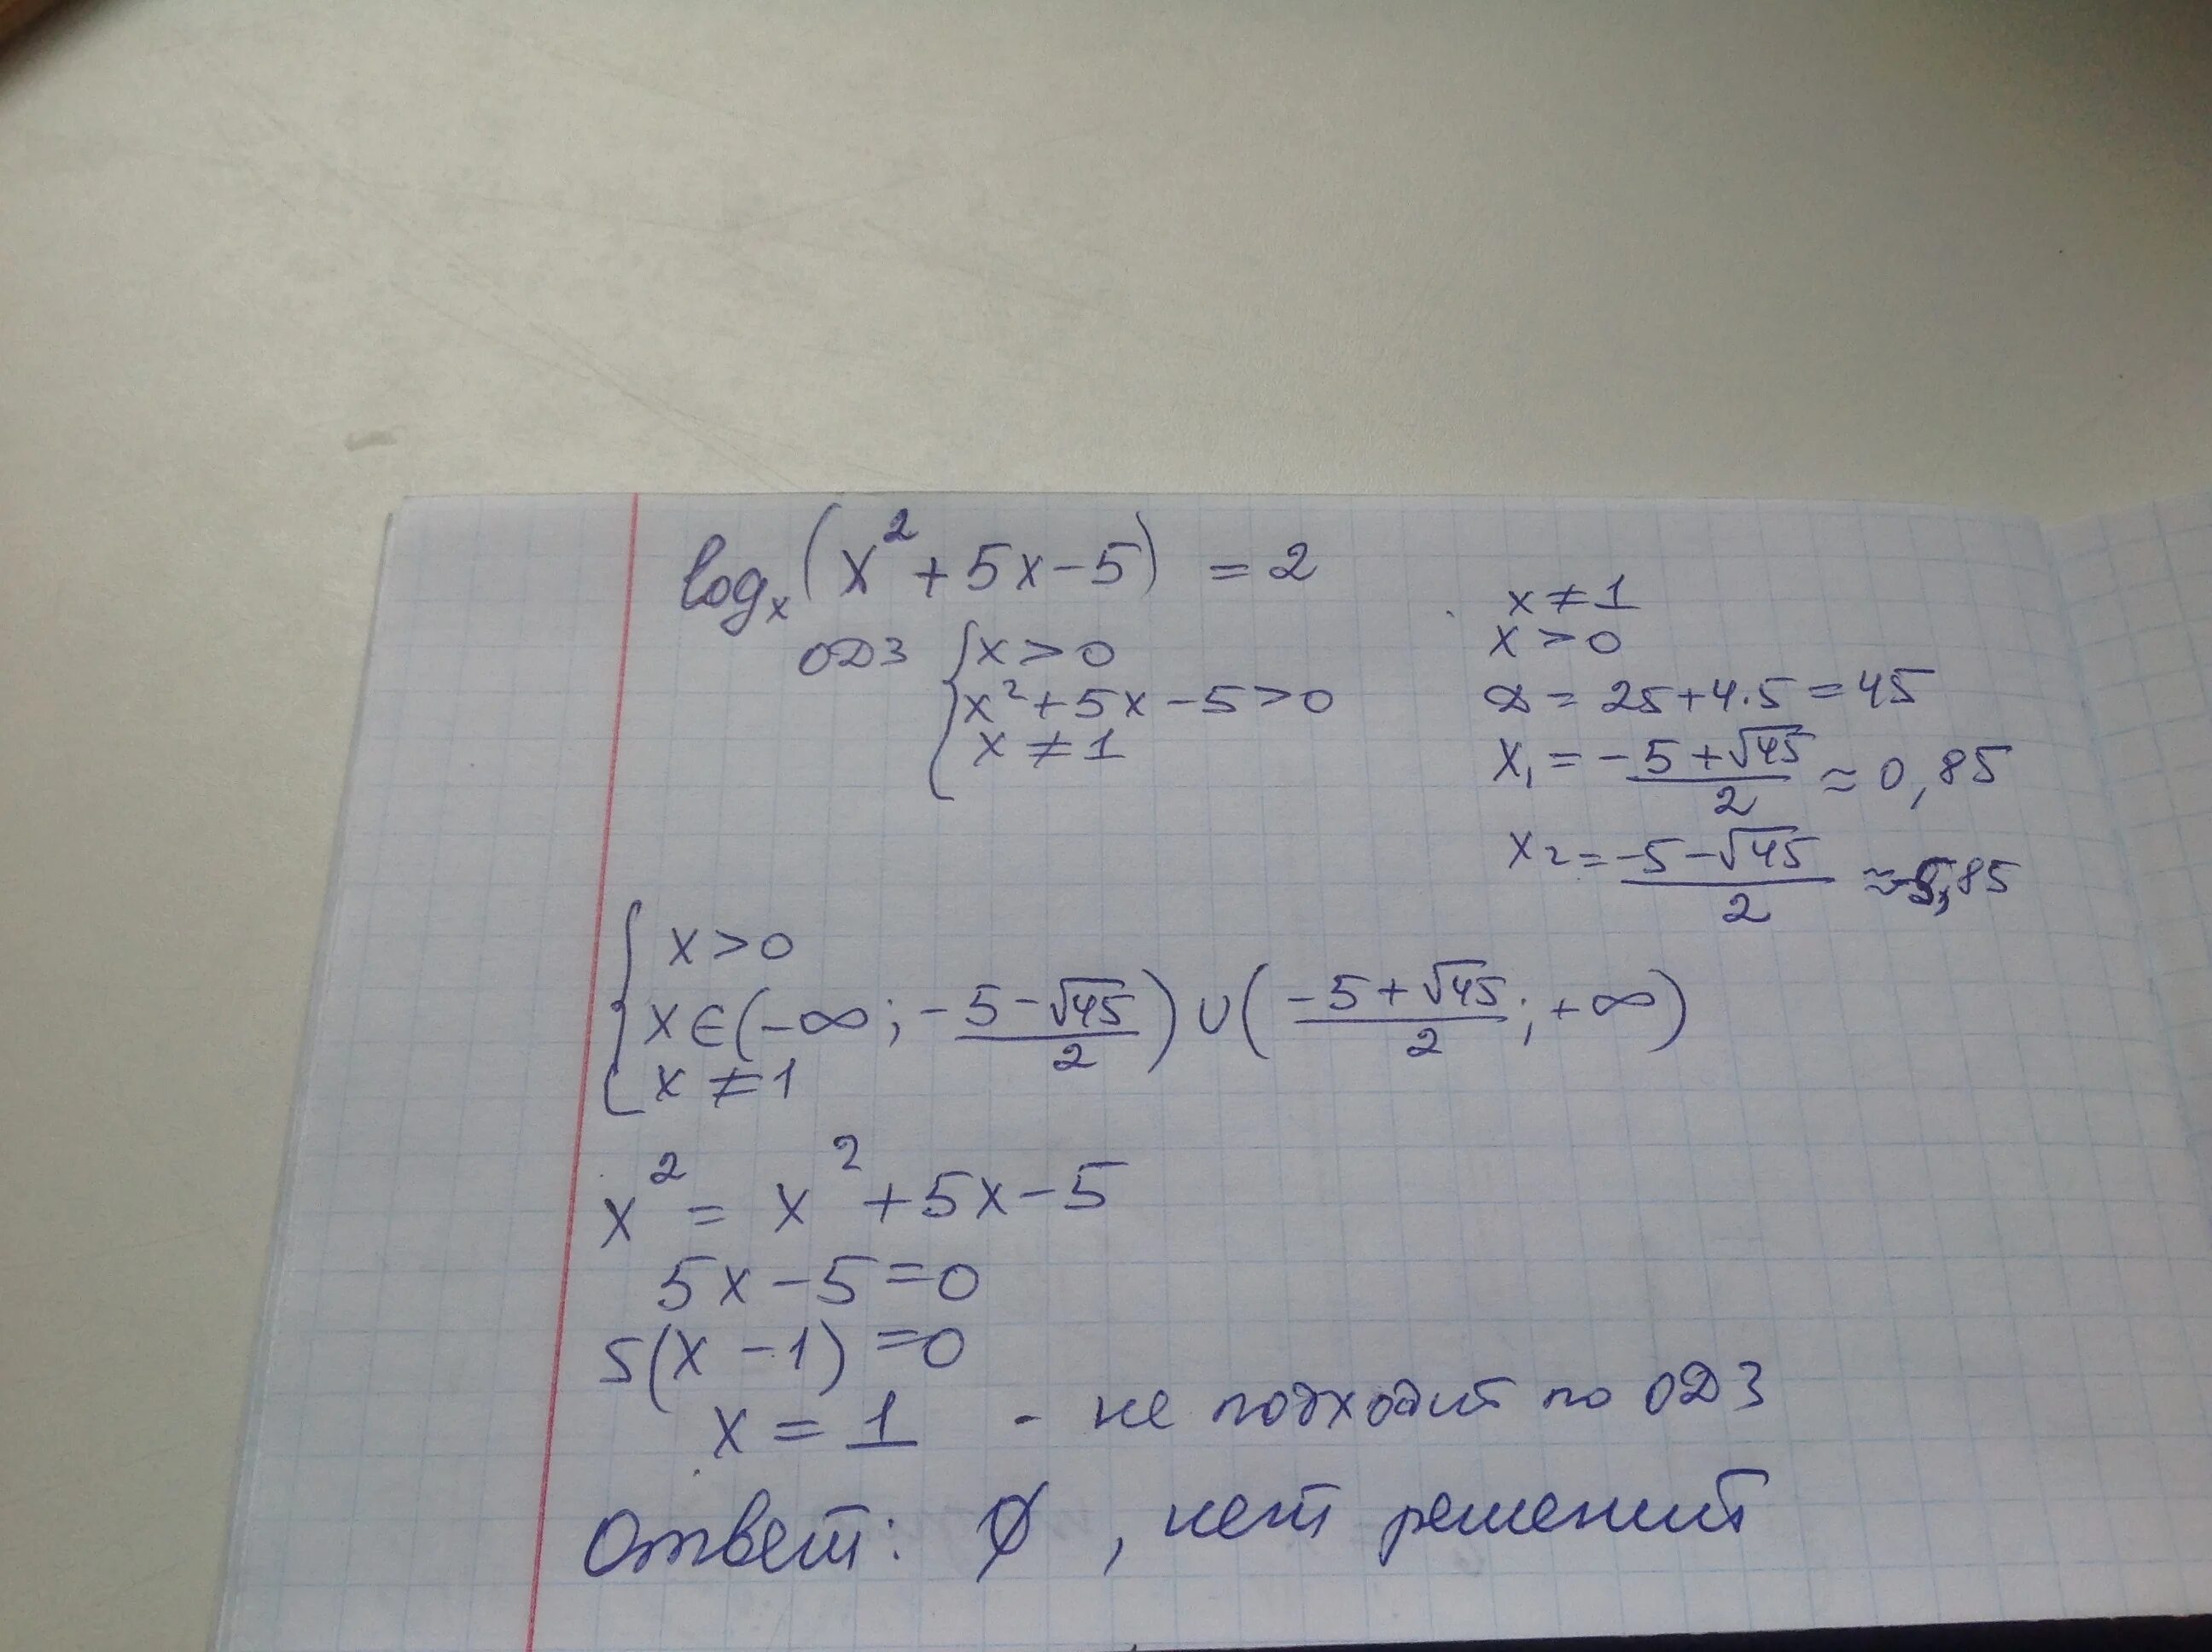 logₓ(x² + 5x - 5) = 2
ОДЗ { x > 0
x² + 5x - 5 > 0
x ≠ 1
x ≠ 1
x > 0
D = 25 + 4·5 = 45
x₁ = (-5 + √45)/2 ≈ 0,85
x₂ = (-5 - √45)/2 ≈ -5,85
{ x > 0
x ∈ (-∞; (-5 - √45)/2) ∪ ((-5 + √45)/2; +∞)
x ≠ 1
x² = x² + 5x - 5
5x - 5 = 0
5(x - 1) = 0
x = 1 - не подходит по ОДЗ
Ответ: ∅, нет решений